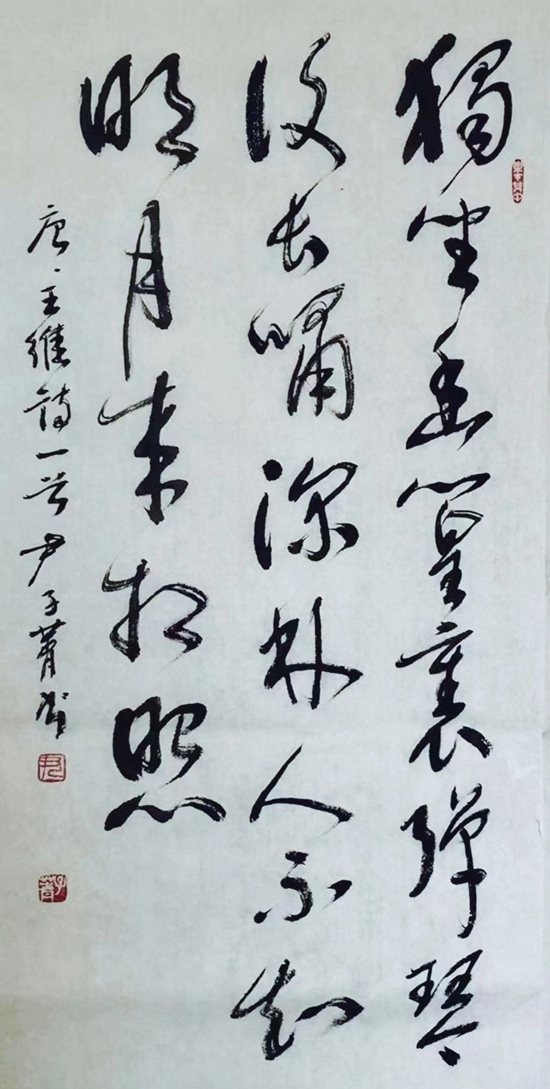 獨坐幽篁裏彈琴
復長嘯深林人不知
明月來相照
唐王維詩一首尹子菁書